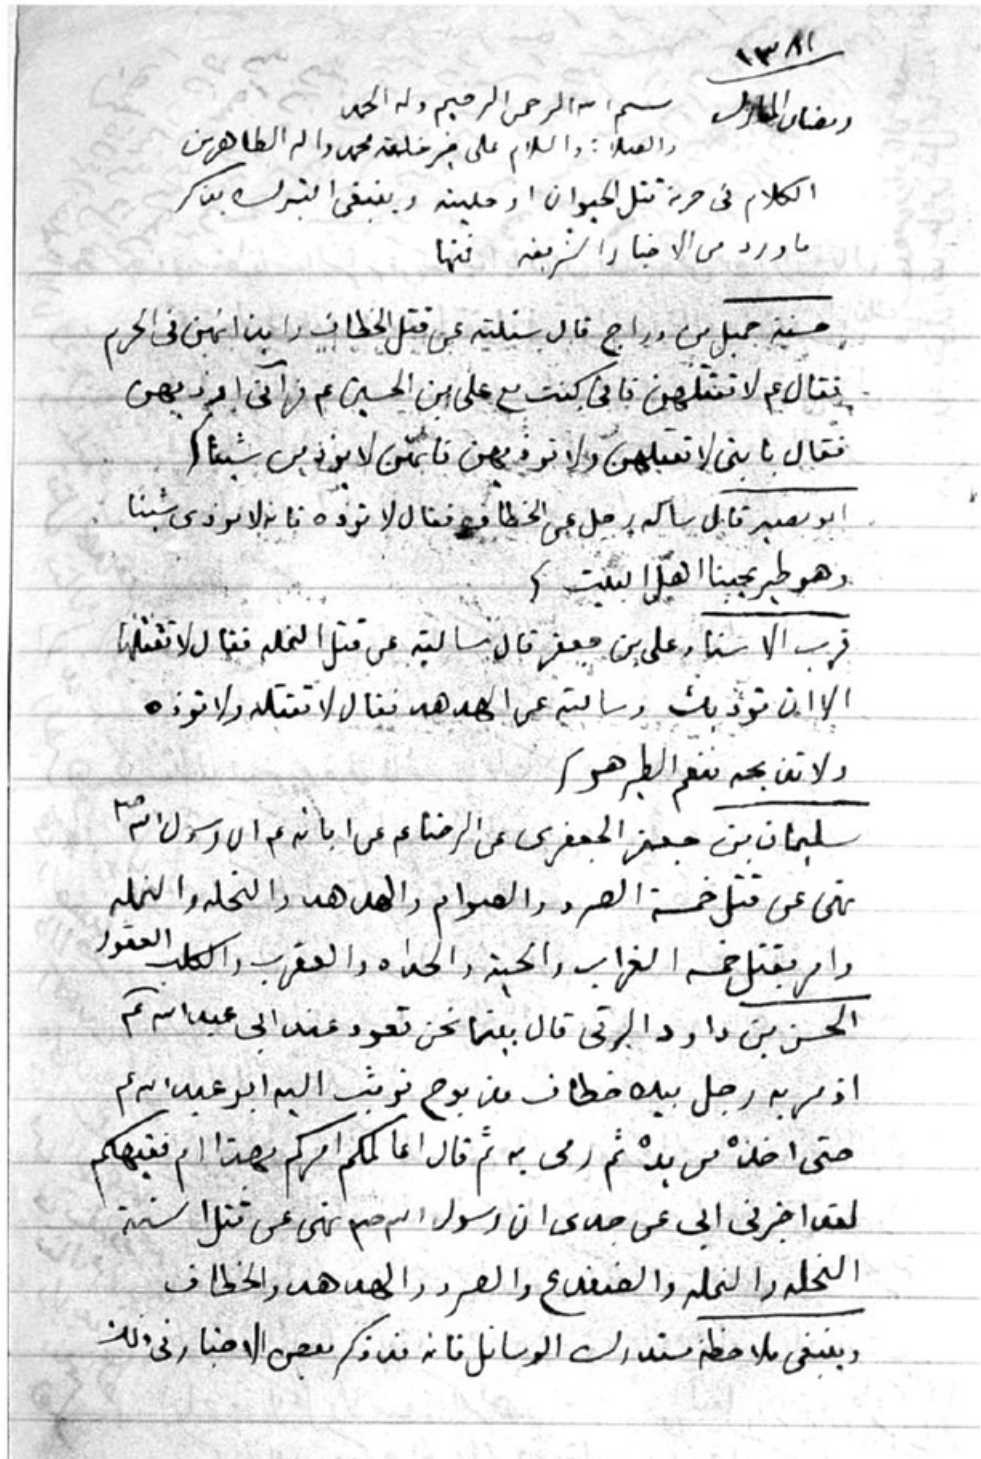 ١٣٨١
رمضان المبارك
بسم الله الرحمن الرحيم وله الحمد
والصلاة والسلام على خير خلقه محمد واله الطاهرين
الكلام فى حرمة قتل الحيوان او حليته وينبغى التبرك بذكر
ما ورد من الاخبار الشريفه فمنها
حسنة جميل بن دراج قال سئلته عن قتل الخطاف وايذائهن فى الحرم
فقال ع لا تقتلهن فانى كنت مع على بن الحسين ع فرآنى اوذيهن
فقال يا بنى لا تقتلهن ولا توذيهن فانهن لا يوذين شيئا
ابو بصير قال ساله رجل عن الخطاف فقال لا توذه فانه لا يوذى شيئا
وهو طير يحبنا اهل البيت
قرب الاسناد على بن جعفر قال سالته عن قتل النمله فقال لا تقتلها
الا ان توذيك وسالته عن الهدهد فقال لا تقتله ولا توذه
ولا تذبحه فنعم الطير هو
سليمان بن جعفر الجعفرى عن الرضا ع عن ابائه ع ان رسول الله ص
نهى عن قتل خمسة الصرد والصوام والهدهد والنحله والنمله
وامر بقتل خمسه الغراب والحية والحداه والعقرب والكلب العقور
الحسن بن داود الرقى قال بينما نحن قعود عند ابى عبد الله ع
اذ مر به رجل بيده خطاف مذبوح فوثب اليه ابو عبد الله ع
حتى اخذه من يده ثم رمى به ثم قال اعالمكم امركم بهذا ام فقيهكم
لقد اخبرنى ابى عن جدى ان رسول الله ص نهى عن قتل الستة
النحله والنمله والضفدع والصرد والهدهد والخطاف
وينبغى ملاحظة مستدرك الوسائل فانه قد ذكر بعض الاخبار فى ذلك